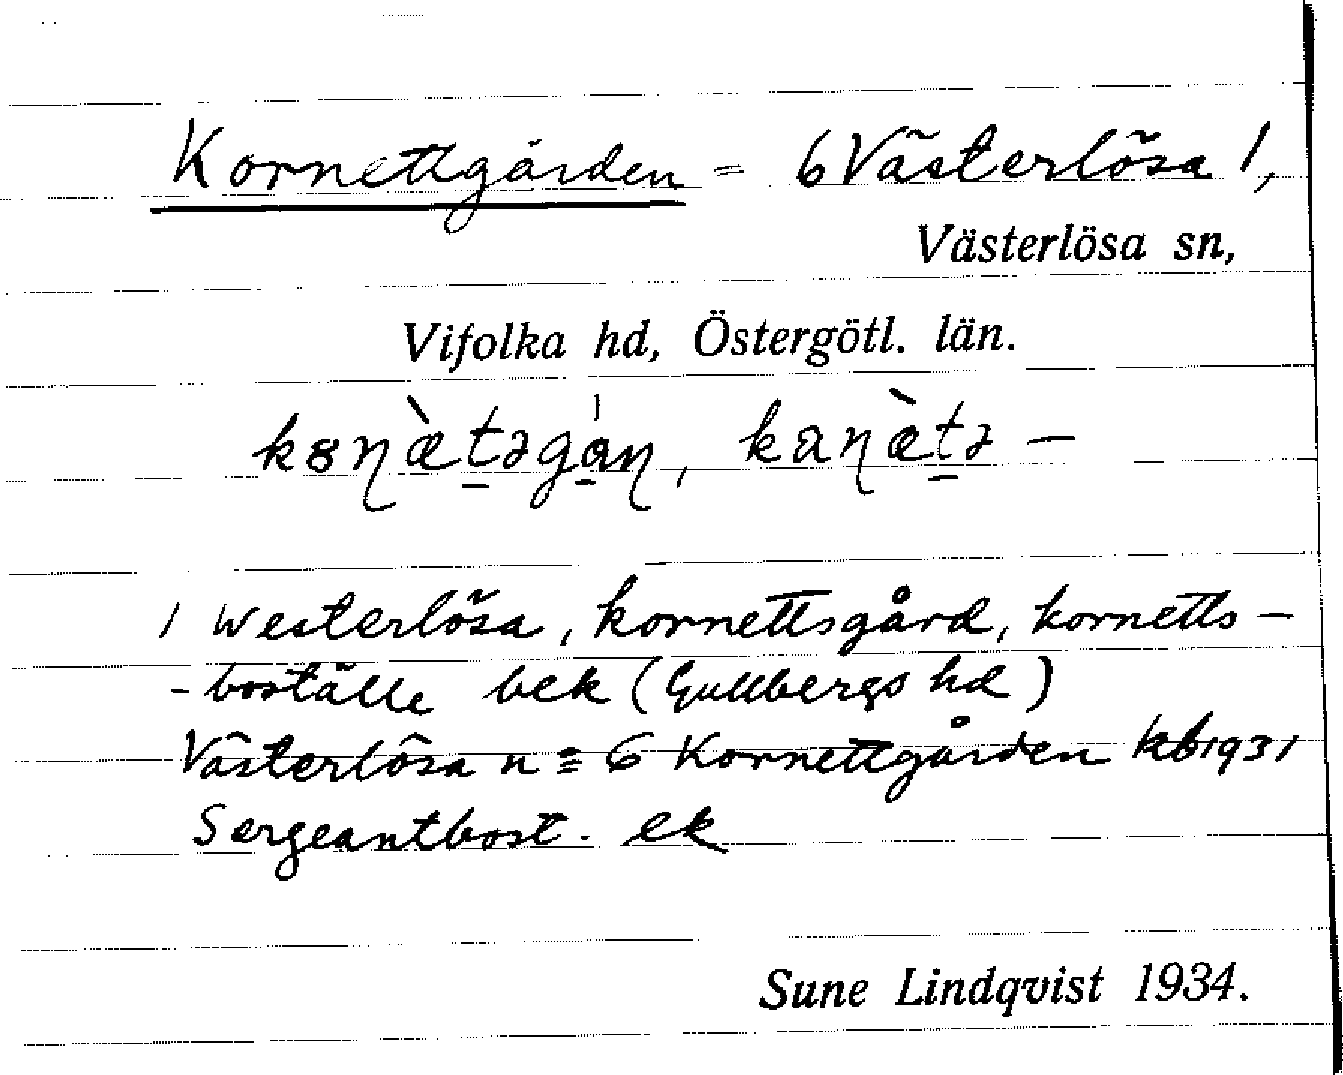 Kornettgården = 6 Västerlösa 1,
Västerlösa sn,
Vifolka hd, Östergötl. län.
kȣɳæ̀t̠əgá̠ɳ, kaɳæ̀t̠ə —
1 Westerlösa, kornettsgård, kornetts-
-boställe bek (Gullbergs hd)
Västerlösa n = 6 Kornettgården kb 1931
Sergeantbost. ek
Sune Lindqvist 1934.